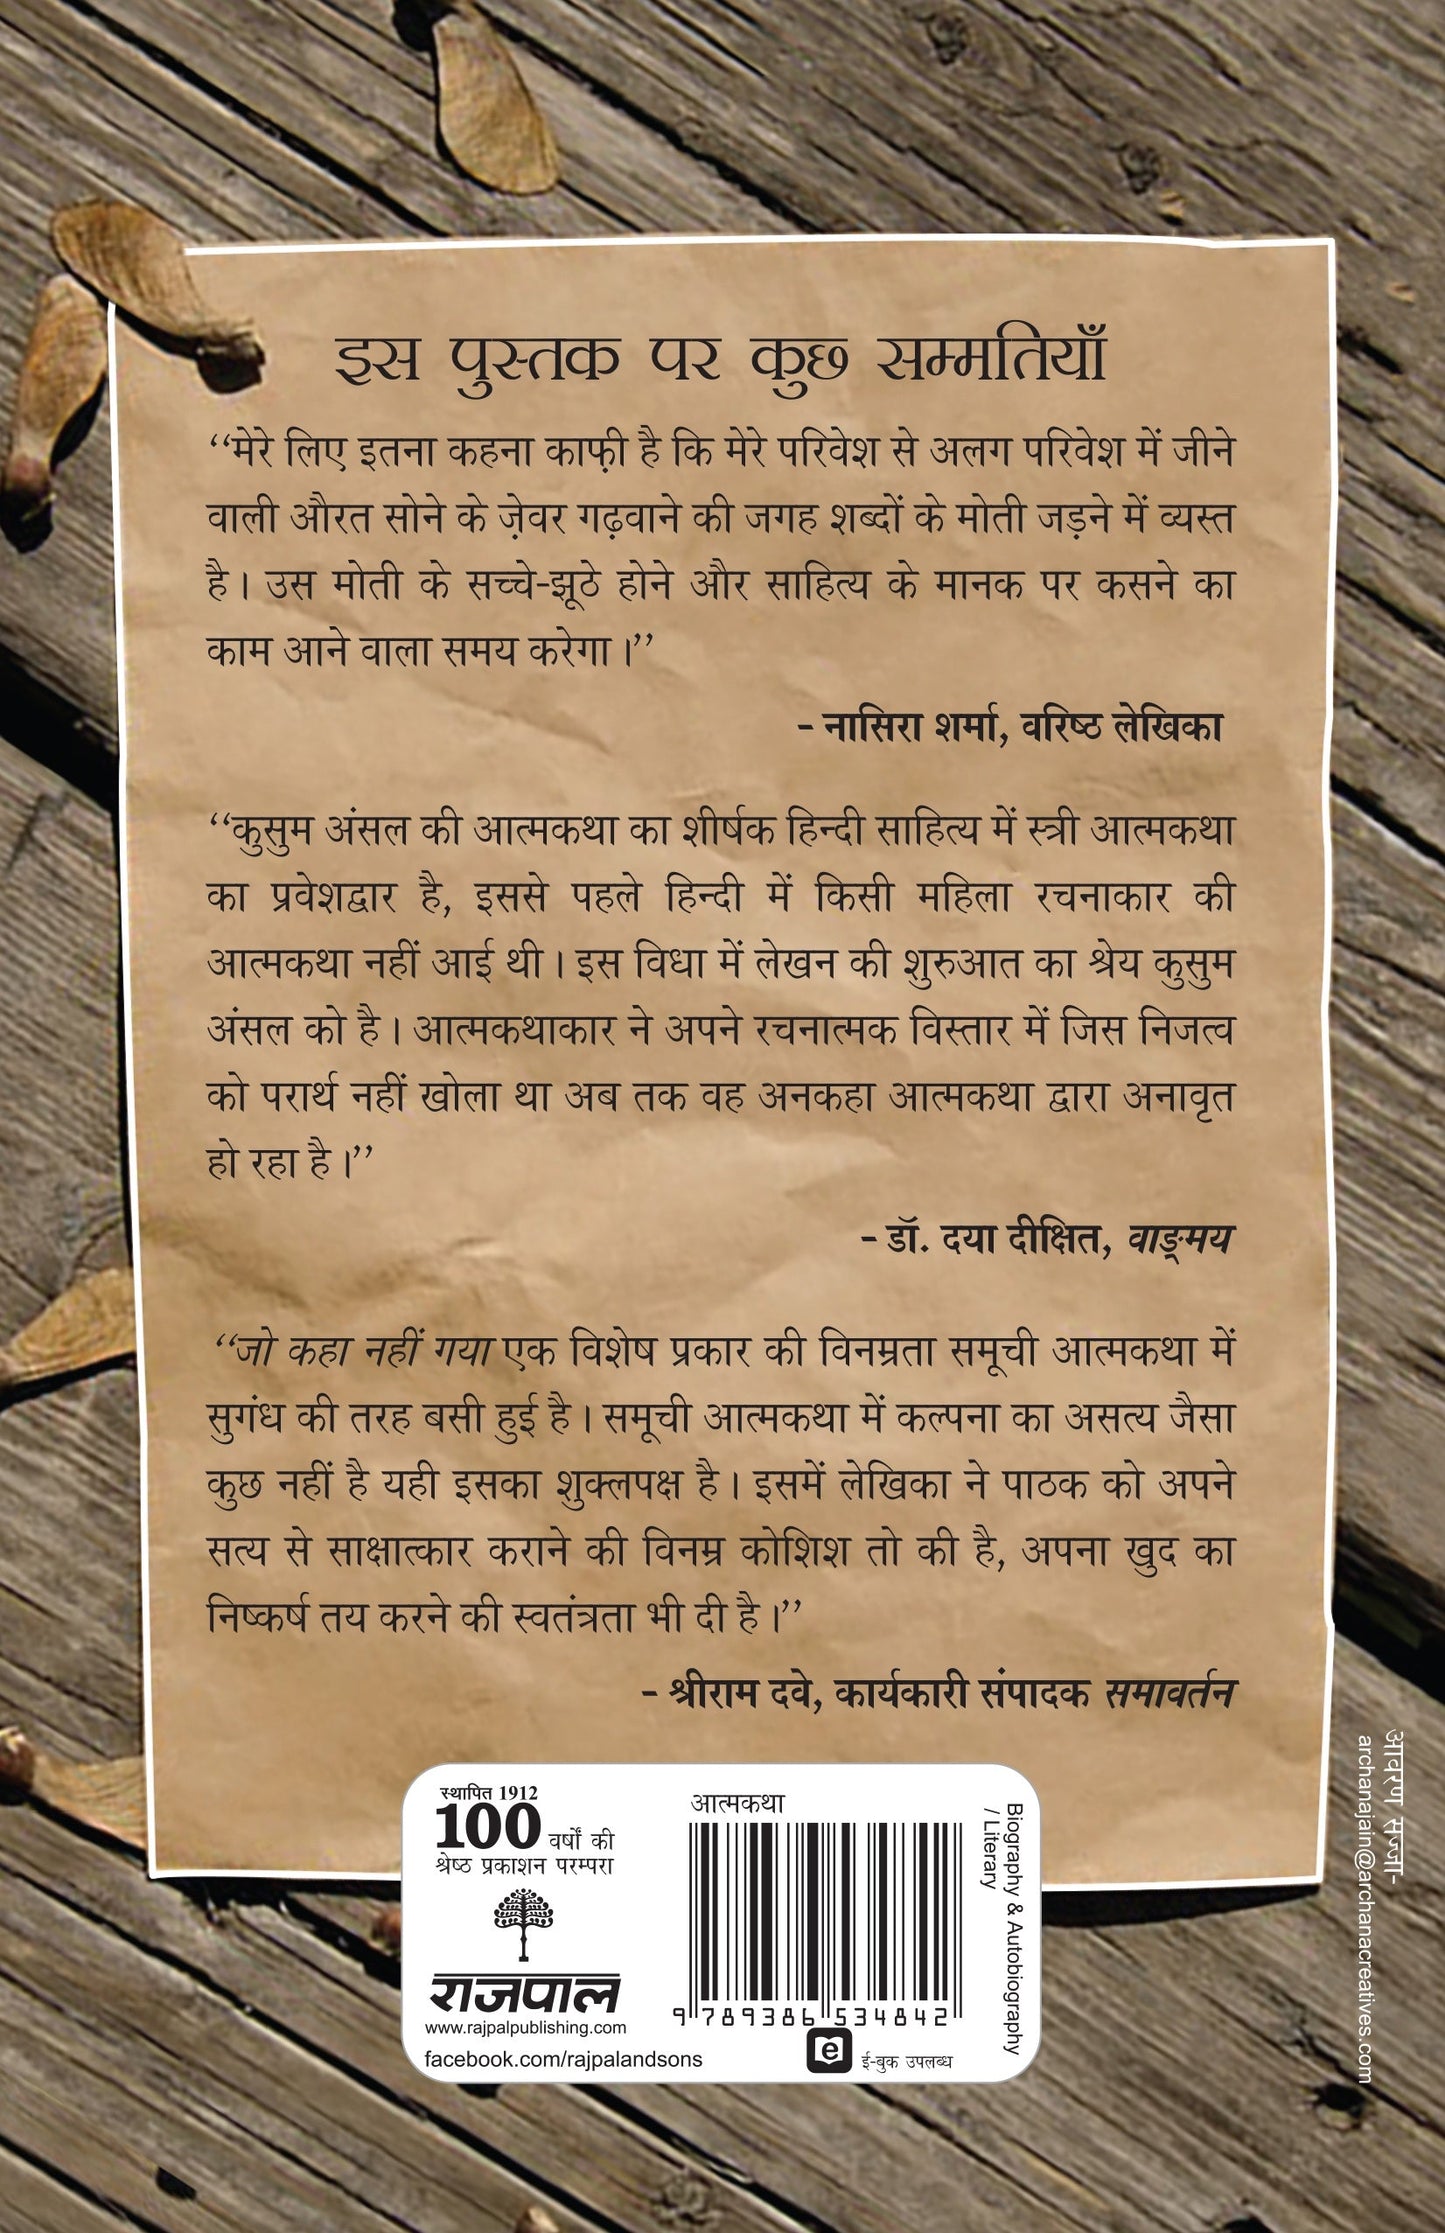 इस पुस्तक पर कुछ सम्मतियाँ
‘‘मेरे लिए इतना कहना काफ़ी है कि मेरे परिवेश से अलग परिवेश में जीने
वाली औरत सोने के ज़ेवर गढ़वाने की जगह शब्दों के मोती जड़ने में व्यस्त
है। उस मोती के सच्चे-झूठे होने और साहित्य के मानक पर कसने का
काम आने वाला समय करेगा।’’
- नासिरा शर्मा, वरिष्ठ लेखिका
‘‘कुसुम अंसल की आत्मकथा का शीर्षक हिन्दी साहित्य में स्त्री आत्मकथा
का प्रवेशद्वार है, इससे पहले हिन्दी में किसी महिला रचनाकार की
आत्मकथा नहीं आई थी। इस विधा में लेखन की शुरुआत का श्रेय कुसुम
अंसल को है। आत्मकथाकार ने अपने रचनात्मक विस्तार में जिस निजत्व
को परार्थ नहीं खोला था अब तक वह अनकहा आत्मकथा द्वारा अनावृत
हो रहा है।’’
- डॉ. दया दीक्षित, वाङ्मय
‘‘जो कहा नहीं गया एक विशेष प्रकार की विनम्रता समूची आत्मकथा में
सुगंध की तरह बसी हुई है। समूची आत्मकथा में कल्पना का असत्य जैसा
कुछ नहीं है यही इसका शुक्लपक्ष है। इसमें लेखिका ने पाठक को अपने
सत्य से साक्षात्कार कराने की विनम्र कोशिश तो की है, अपना खुद का
निष्कर्ष तय करने की स्वतंत्रता भी दी है।’’
- श्रीराम दवे, कार्यकारी संपादक समावर्तन
स्थापित 1912
100 वर्षों की
श्रेष्ठ प्रकाशन परम्परा
राजपाल
www.rajpalpublishing.com
facebook.com/rajpalandsons
आत्मकथा
9 789386 534842
e ई-बुक उपलब्ध
Biography & Autobiography
/ Literary
आवरण सज्जा-
archanajain@archanacreatives.com